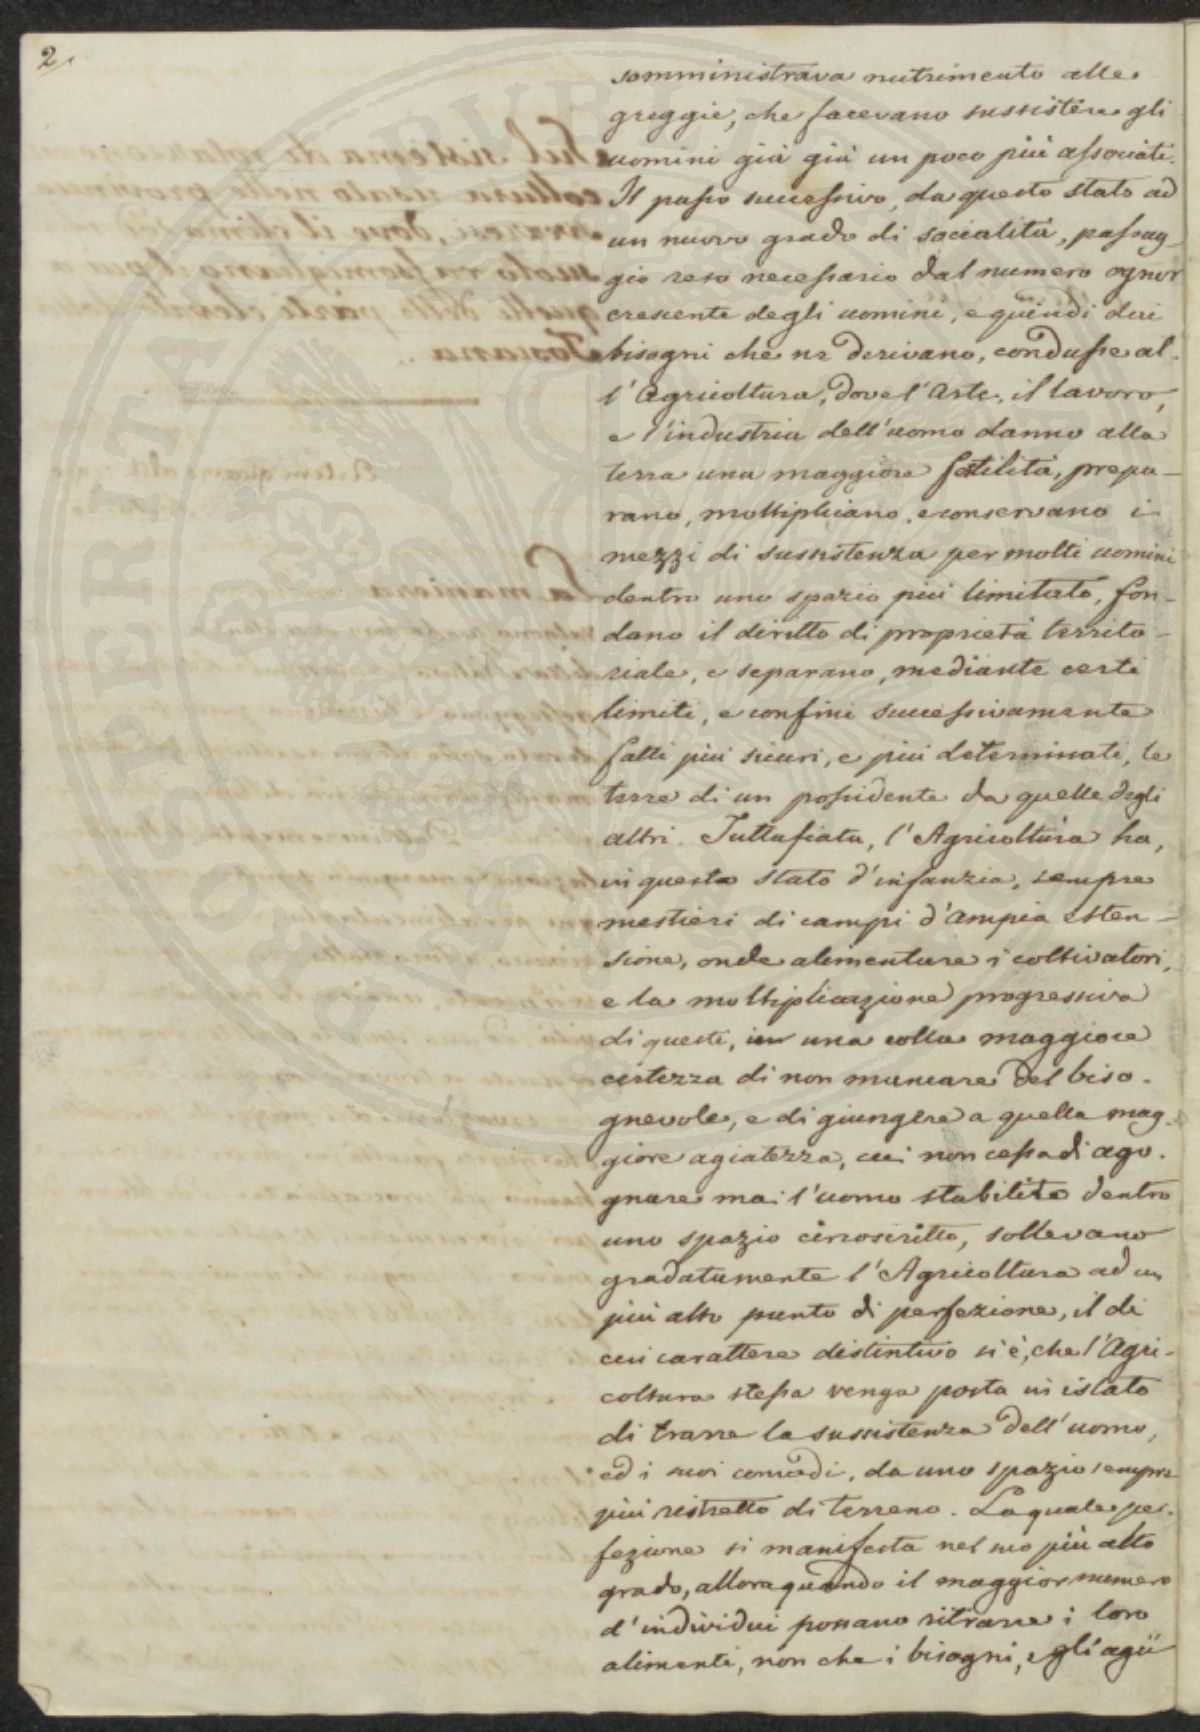 2/
somministrava nutrimento alle
greggie, che facevano sussistere gli
uomini già già un poco più associati.
Il passo successivo, da questo stato ad
un nuovo grado di socialità, passag-
gio reso necessario dal numero ognor
crescente degli uomini, e quindi dei
bisogni che ne derivano, condusse al-
l'Agricoltura, dove l'Arte, il lavoro,
e l'industria dell'uomo danno alla
terra una maggiore fertilità, prepa-
rano, moltiplicano, e conservano i
mezzi di sussistenza per molti uomini
dentro uno spazio più limitato, fon-
dano il diritto di proprietà territo-
riale, e separano, mediante certi
limiti, e confini successivamente
fatti più sicuri, e più determinati, le
terre di un possidente da quelle degli
altri. Tuttafiata, l'Agricoltura ha,
in questo stato d'infanzia, sempre
mestieri di campi d'ampia esten-
sione, onde alimentare i coltivatori,
e la moltiplicazione progressiva
di questi, una colla maggiore
certezza di non mancare del biso-
gnevole, e di giungere a quella mag-
giore agiatezza, cui non cessa di ago-
gnare mai l'uomo stabilito dentro
uno spazio circoscritto, sollevano
gradatamente l'Agricoltura ad un
più alto punto di perfezione, il di
cui carattere distintivo si è, che l'Agri-
coltura stessa venga posta in istato
di trarre la sussistenza dell'uomo,
ed i suoi comodi, da uno spazio sempre
più ristretto di terreno. La quale per-
fezione si manifesta nel suo più alto
grado, allora quando il maggior numero
d'individui possano ritrarre i loro
alimenti, non che i bisogni, e gli agii